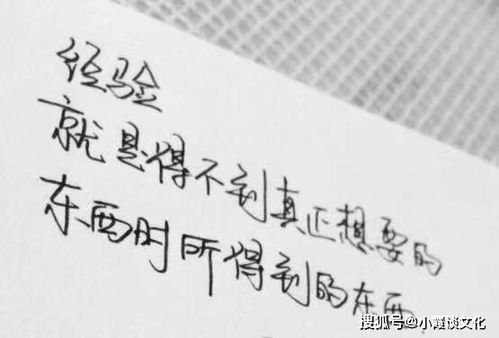 经验
就是得不到真正想要的
东西时所得到的东西
搜狐号@小霞谈文化